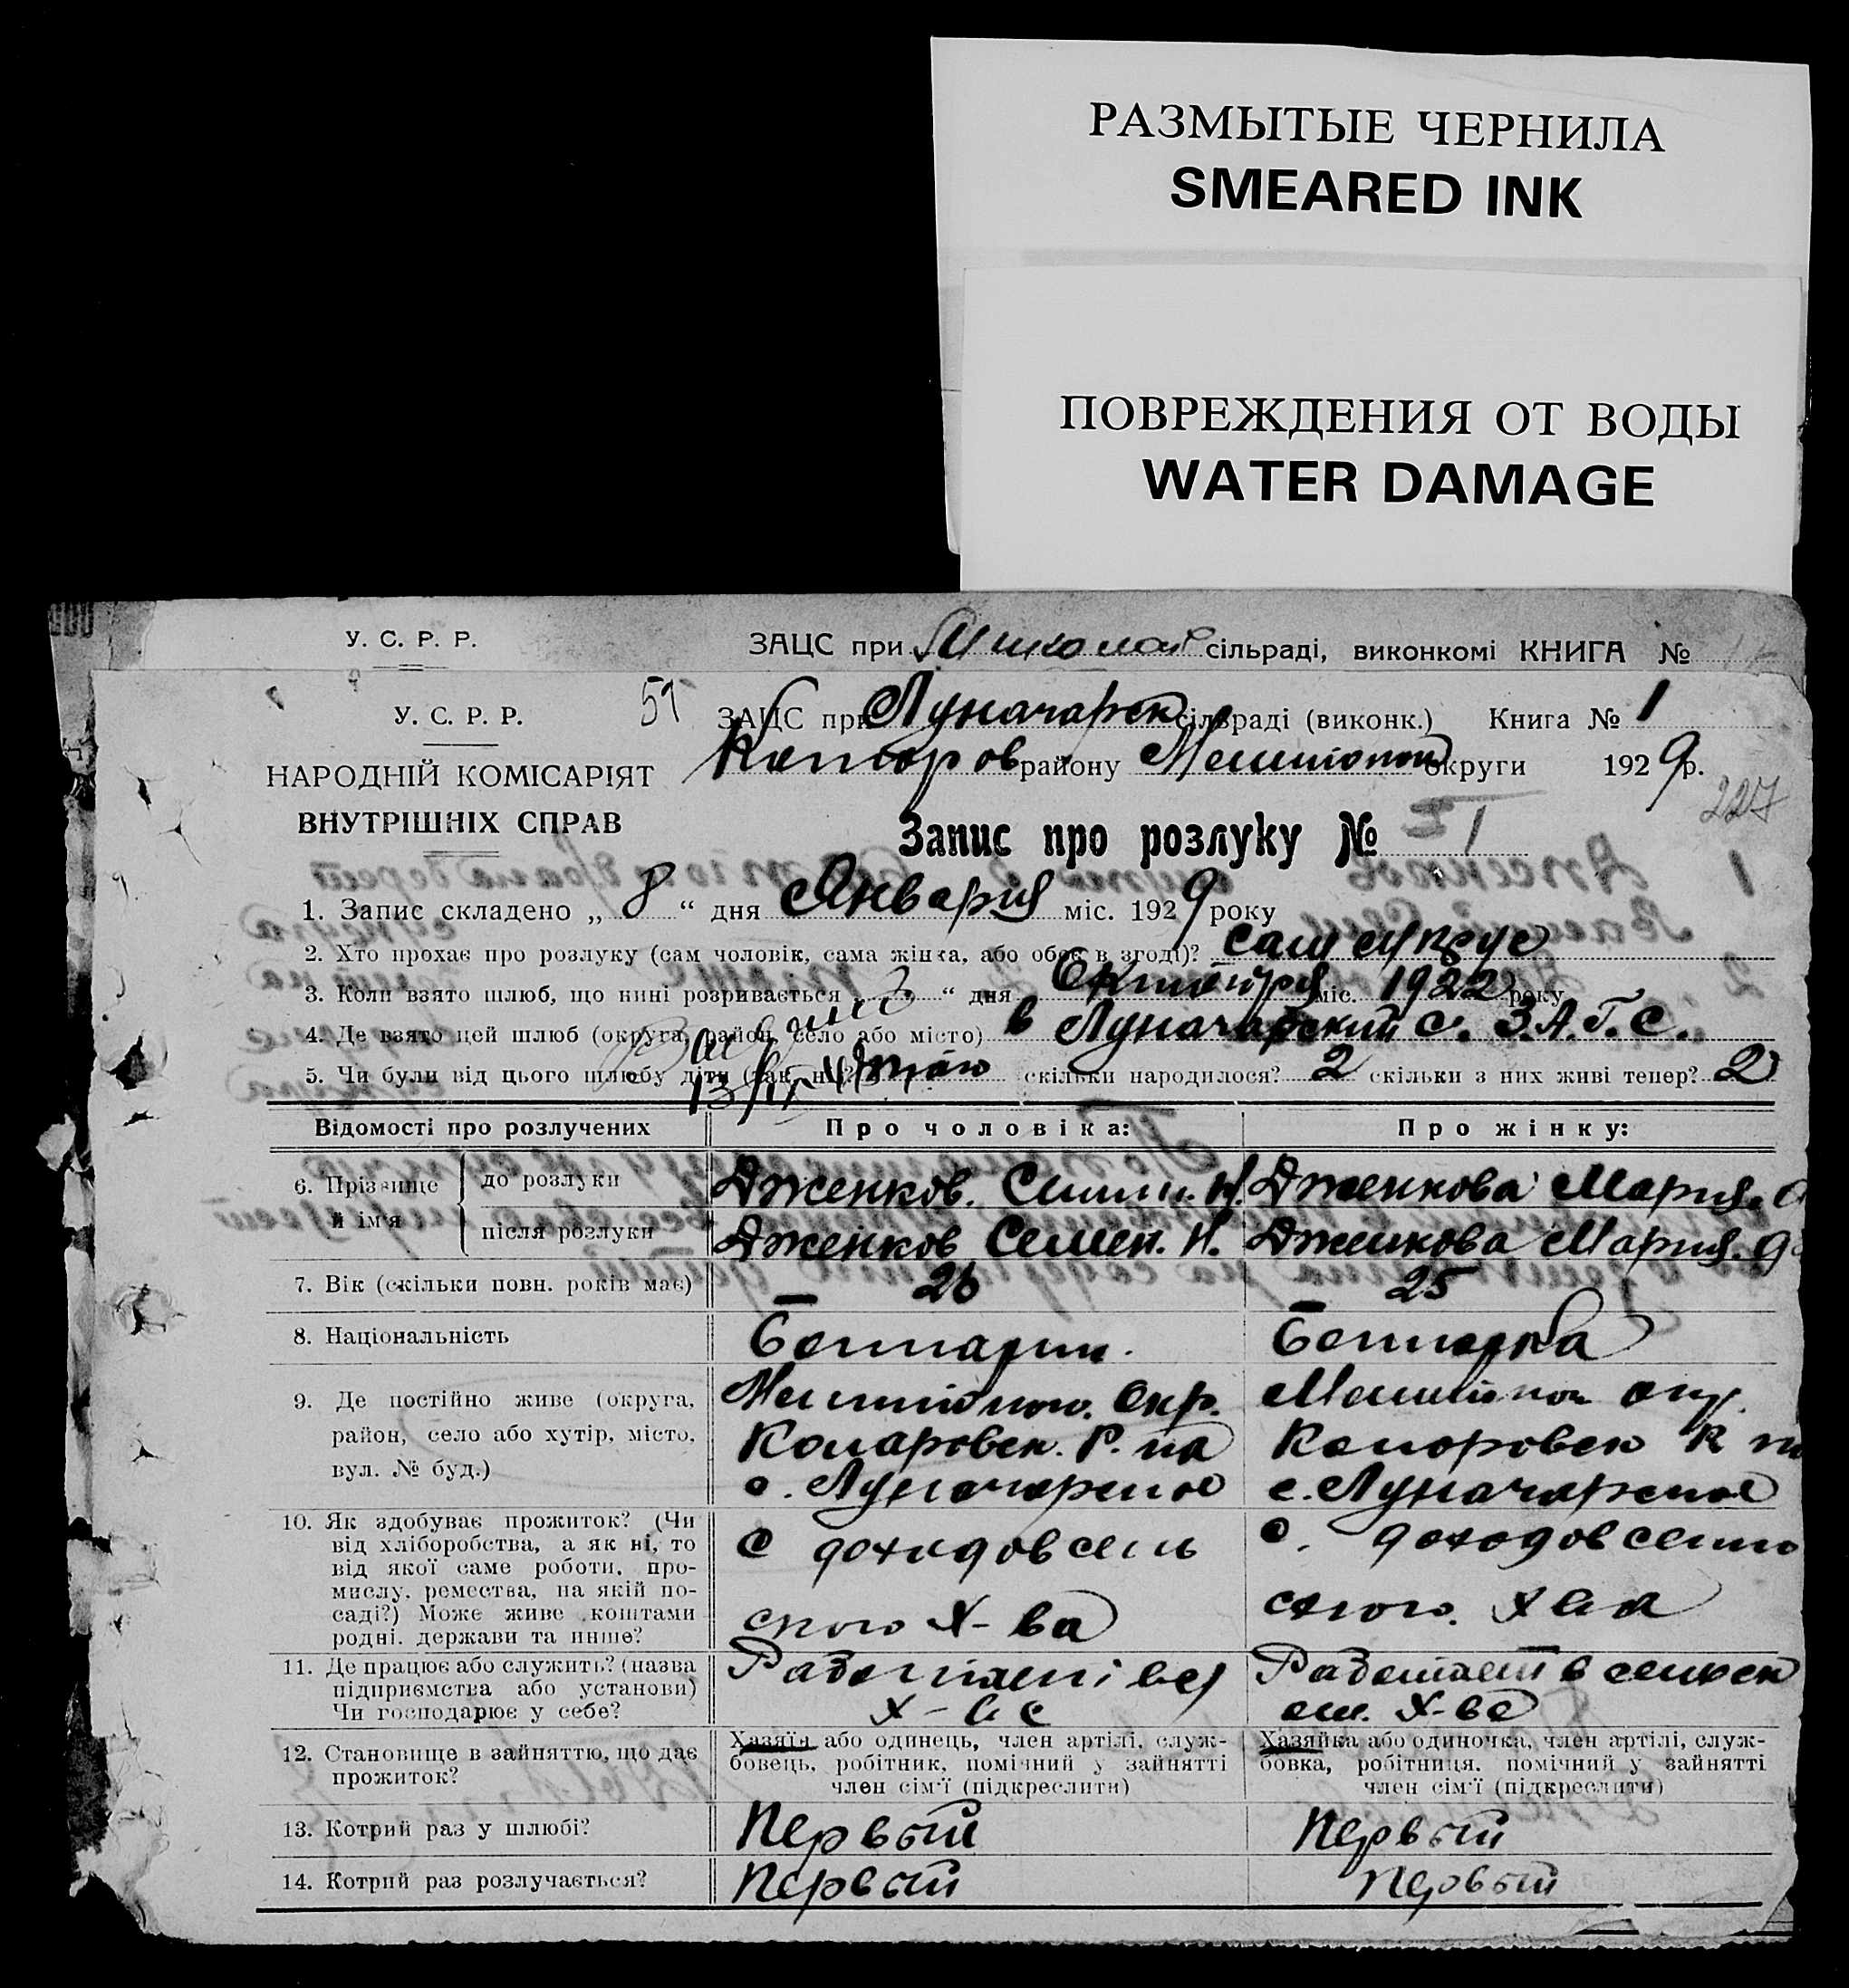 РАЗМЫТЫЕ ЧЕРНИЛА
SMEARED INK
ПОВРЕЖДЕНИЯ ОТ ВОДЫ
WATER DAMAGE
У. С. Р. Р. ЗАЦС при сільраді, виконкомі КНИГА №
У. С. Р. Р. 51 ЗАЦС при Луначарск сільраді (виконк.) Книга № 1
району округи 1929 р.
НАРОДНІЙ КОМІСАРІЯТ
ВНУТРІШНІХ СПРАВ
227
Запис про розлуку № 1
1. Запис складено „ 8 “ дня Января міс. 1929 року
2. Хто прохає про розлуку (сам чоловік, сама жінка, або обоє в згоді)? сам супруг
3. Коли взято шлюб, що нині розривається „ “ дня Октября міс. 1922 року
4. Де взято цей шлюб (округа, район, село або місто) в Луначарский с. З.А.Г.С.
5. Чи були від цього шлюбу діти (так, ні)? скільки народилося? 2 скільки з них живі тепер? 2
Відомості про розлучених Про чоловіка: Про жінку:
6. Прізвище й ім'я до розлуки Дженков. Семен. Н. Дженкова Мария.
після розлуки Дженков Семен. Н. Дженкова Мария.
7. Вік (скільки повн. років має) 26 25
8. Національність Болгарин. Болгарка
9. Де постійно живе (округа,
район, село або хутір, місто,
вул. № буд.)
Окр. Окр.
Р. на
с. Луначарское с. Луначарское
10. Як здобуває прожиток? (Чи
від хліборобства, а як ні, то
від якої саме роботи, про-
мислу, ремества, на якій по-
саді?) Може живе коштами
родні, держави та инше?
С доходов сель С доходов сель
ского Х-ва ского. Х-ва
11. Де працює або служить? (назва
підприємства або установи)
Чи господарює у себе?
Работает в Работает в сельск
Х-ве Х-ве
12. Становище в зайняттю, що дає
прожиток?
Хазяїн або одинець, член артілі, служ-
бовець, робітник, помічний у зайнятті
член сім'ї (підкреслити)
Хазяйка або одиночка, член артілі, служ-
бовка, робітниця, помічний у зайнятті
член сім'ї (підкреслити)
13. Котрий раз у шлюбі? Первый Первый
14. Котрий раз розлучається? Первый Первый